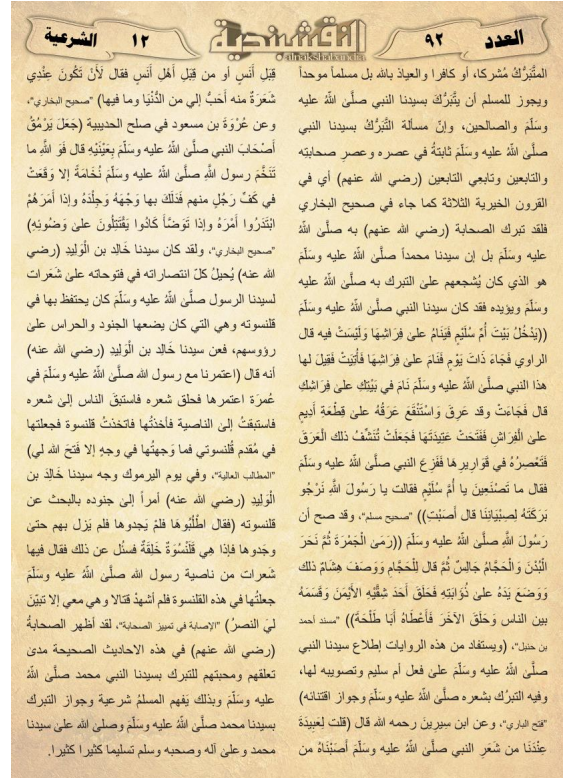 العدد ٩٢
النقشبندية
alnakshabandia
١٢ الشرعية
المتَبَرِّكُ مُشركا، أو كافرا والعياذ بالله بل مسلماً موحداً
ويجوز للمسلم أن يتَّبَرَّكُ بسيدنا النبي صلَّىٰ اللهُ عليه
وسَلَّمَ والصالحين، وإنّ مسألة التَّبَرُّكُ بسيدنا النبي
صلَّىٰ اللهُ عليه وسَلَّمَ ثابتةُ في عصره وعصرِ صحابته
والتابعين وتابعي التابعين (رضي الله عنهم) أي في
القرون الخيرية الثلاثة كما جاء في صحيح البخاري
فلقد تبرك الصحابة (رضي الله عنهم) به صلَّىٰ اللهُ
عليه وسَلَّمَ بل إن سيدنا محمداً صلَّىٰ اللهُ عليه وسَلَّمَ
هو الذي كان يُشجعهم علىٰ التبرك به صلَّىٰ اللهُ عليه
وسَلَّمَ ويؤيده فقد كان سيدنا النبي صلَّىٰ اللهُ عليه وسَلَّمَ
((يَدْخُلُ بَيْتَ أُمِّ سُلَيْمٍ فَيَنَامُ علىٰ فِرَاشِهَا وَلَيْسَتْ فيه قال
الراوي فَجَاءَ ذَاتَ يَوْمٍ فَنَامَ علىٰ فِرَاشِهَا فَأُتِيَتْ فَقِيلَ لها
هذا النبي صلَّىٰ اللهُ عليه وسَلَّمَ نَامَ في بَيْتِكِ علىٰ فِرَاشِكِ
قال فَجَاءَتْ وقد عَرِقَ وَاسْتَنْقَعَ عَرَقُهُ علىٰ قِطْعَةِ أَدِيمٍ
علىٰ الْفِرَاشِ فَفَتَحَتْ عَتِيدَتَهَا فَجَعَلَتْ تُنَشِّفُ ذلك الْعَرَقَ
فَتَعْصِرُهُ في قَوَارِيرِهَا فَفَزِعَ النبي صلَّىٰ اللهُ عليه وسَلَّمَ
فقال ما تَصْنَعِينَ يا أُمَّ سُلَيْمٍ فقالت يا رَسُولَ اللهِ نَرْجُو
بَرَكَتَهُ لِصِبْيَانِنَا قال أَصَبْتِ)) "صحيح مسلم"، وقد صح أن
رَسُولَ اللهِ صلَّىٰ اللهُ عليه وسَلَّمَ ((رَمَىٰ الْجَمْرَةَ ثُمَّ نَحَرَ
الْبُدْنَ وَالْحَجَّامُ جَالِسٌ ثُمَّ قال لِلْحَجَّامِ وَوَصَفَ هِشَامٌ ذلك
وَوَضَعَ يَدَهُ علىٰ ذُؤَابَتِهِ فَحَلَقَ أَحَدَ شِقَّيْهِ الأَيْمَنَ وَقَسَمَهُ
بين الناس وَحَلَقَ الآخَرَ فَأَعْطَاهُ أَبَا طَلْحَةَ)) "مسند أحمد
بن حنبل"، (ويستفاد من هذه الروايات إطلاع سيدنا النبي
صلَّىٰ اللهُ عليه وسَلَّمَ علىٰ فعل أم سليم وتصويبه لها،
وفيه التبرُك بشعره صلَّىٰ اللهُ عليه وسَلَّمَ وجواز اقتنائه)
"فتح الباري"، وعن ابن سِيرِينَ رحمه الله قال (قلت لِعَبِيدَةَ
عِنْدَنَا من شَعَرِ النبي صلَّىٰ اللهُ عليه وسَلَّمَ أَصَبْنَاهُ من
قِبَلِ أَنَسٍ أو من قِبَلِ أَهْلِ أَنَسٍ فقال لَأَنْ تَكُونَ عِنْدِي
شَعَرَةٌ منه أَحَبُّ إلي من الدُّنْيَا وما فيها) "صحيح البخاري"،
وعن عُرْوَةَ بن مسعود في صلح الحديبية (جَعَلَ يَرْمُقُ
أَصْحَابَ النبي صلَّىٰ اللهُ عليه وسَلَّمَ بِعَيْنَيْهِ قال فَوَ اللهِ ما
تَنَخَّمَ رسول اللهِ صلَّىٰ اللهُ عليه وسَلَّمَ نُخَامَةً إلا وَقَعَتْ
في كَفِّ رَجُلٍ منهم فَدَلَكَ بها وَجْهَهُ وَجِلْدَهُ وإذا أَمَرَهُمْ
ابْتَدَرُوا أَمْرَهُ وإذا تَوَضَّأَ كَادُوا يَقْتَتِلُونَ علىٰ وَضُوئِهِ)
"صحيح البخاري"، ولقد كان سيدنا خَالِد بن الْوَلِيدِ (رضي
الله عنه) يُحيلُ كلّ انتصاراته في فتوحاته علىٰ شَعَرات
لسيدنا الرسول صلَّىٰ اللهُ عليه وسَلَّمَ كان يحتفظ بها في
قلنسوته وهي التي كان يضعها الجنود والحراس علىٰ
رؤوسهم، فعن سيدنا خَالِد بن الْوَلِيدِ (رضي الله عنه)
أنه قال (اعتمرنا مع رسول الله صلَّىٰ اللهُ عليه وسَلَّمَ في
عُمرَة اعتمرها فحلق شعره فاستبقَ الناس إلىٰ شعره
فاستبقتُ إلىٰ الناصية فأخذتُها فاتخذتُ قلنسوة فجعلتها
في مُقدم قُلنسوتي فما وَجهتُها في وجهٍ إلا فتحَ الله لي)
"المطالب العالية"، وفي يوم اليرموك وجه سيدنا خَالِد بن
الْوَلِيدِ (رضي الله عنه) أمراً إلىٰ جنوده بالبحث عن
قلنسوته (فقال اطْلُبُوهَا فلمْ يَجدوها فلم يَزل بهم حتىٰ
وجَدوها فإذا هِي قَلَنْسُوَةٌ خَلِقَةٌ فسئل عن ذلك فقال فيها
شَعرات من ناصية رسول الله صلَّىٰ اللهُ عليه وسَلَّمَ
جعلتُها في هذه القلنسوة فلم أشهدْ قتالا وهي معي إلا تبيّنَ
ليَ النصرُ) "الإصابة في تمييز الصحابة"، لقد أظهر الصحابةُ
(رضي الله عنهم) في هذه الاحاديث الصحيحة مدىٰ
تعلقهم ومحبتهم للتبرك بسيدنا النبي محمد صلَّىٰ اللهُ
عليه وسَلَّمَ وبذلك يَفهم المسلمُ شرعية وجواز التبرك
بسيدنا محمد صلَّىٰ اللهُ عليه وسَلَّمَ وصلىٰ الله علىٰ سيدنا
محمد وعلىٰ آله وصحبه وسلم تسليما كثيرا كثيرا.